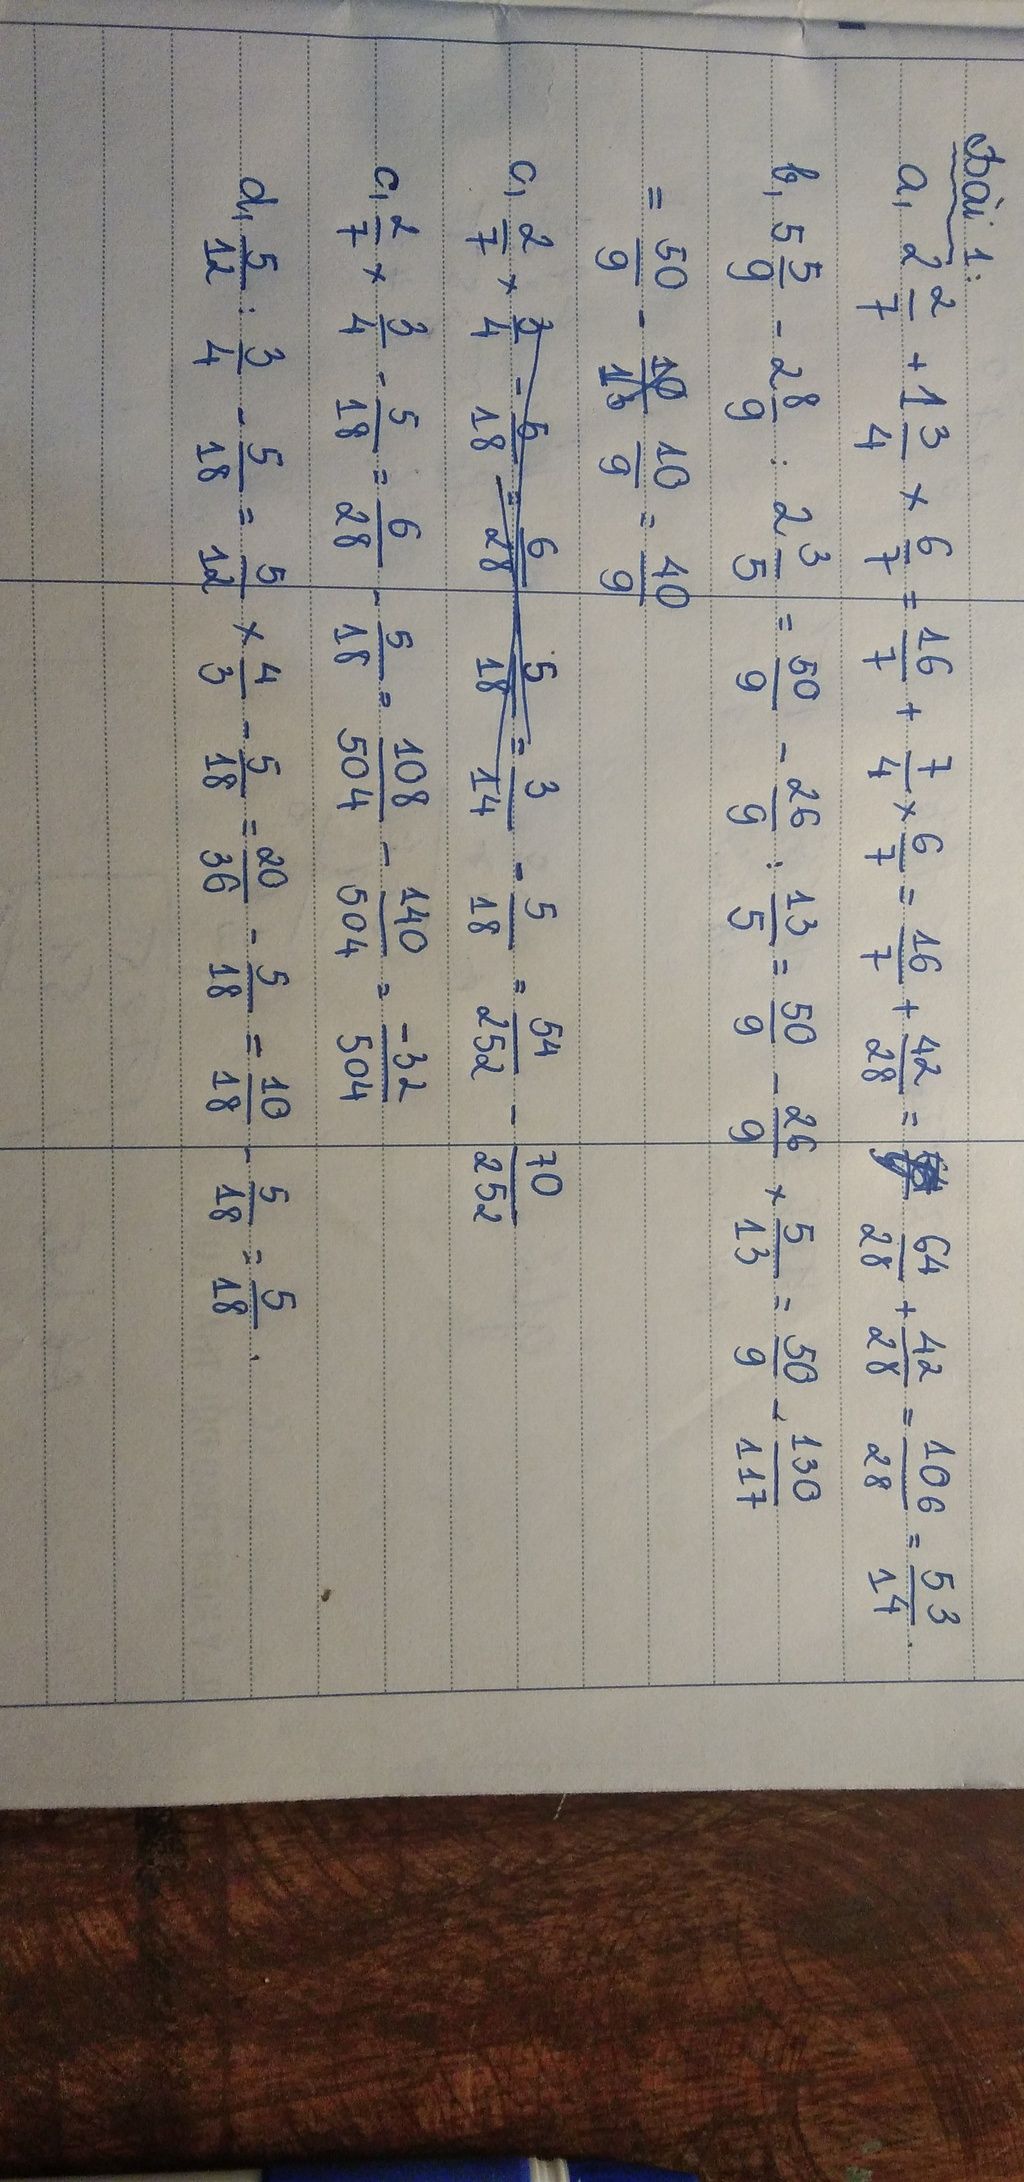 Bài 1:
a, 2 2/7 + 1 3/4 × 6/7 = 16/7 + 7/4 × 6/7 = 16/7 + 42/28 = 64/28 + 42/28 = 106/28 = 53/14.
b, 5 5/9 - 2 8/9 : 2 3/5 = 50/9 - 26/9 : 13/5 = 50/9 - 26/9 × 5/13 = 50/9 - 130/117
= 50/9 - 10/9 = 40/9
c, 2/7 × 3/4 - 5/18 = 6/28 5/18 = 3/14 - 5/18 = 54/252 - 70/252
c, 2/7 × 3/4 - 5/18 = 6/28 - 5/18 = 108/504 - 140/504 = -32/504
d, 5/12 : 3/4 - 5/18 = 5/12 × 4/3 - 5/18 = 20/36 - 5/18 = 10/18 - 5/18 = 5/18.